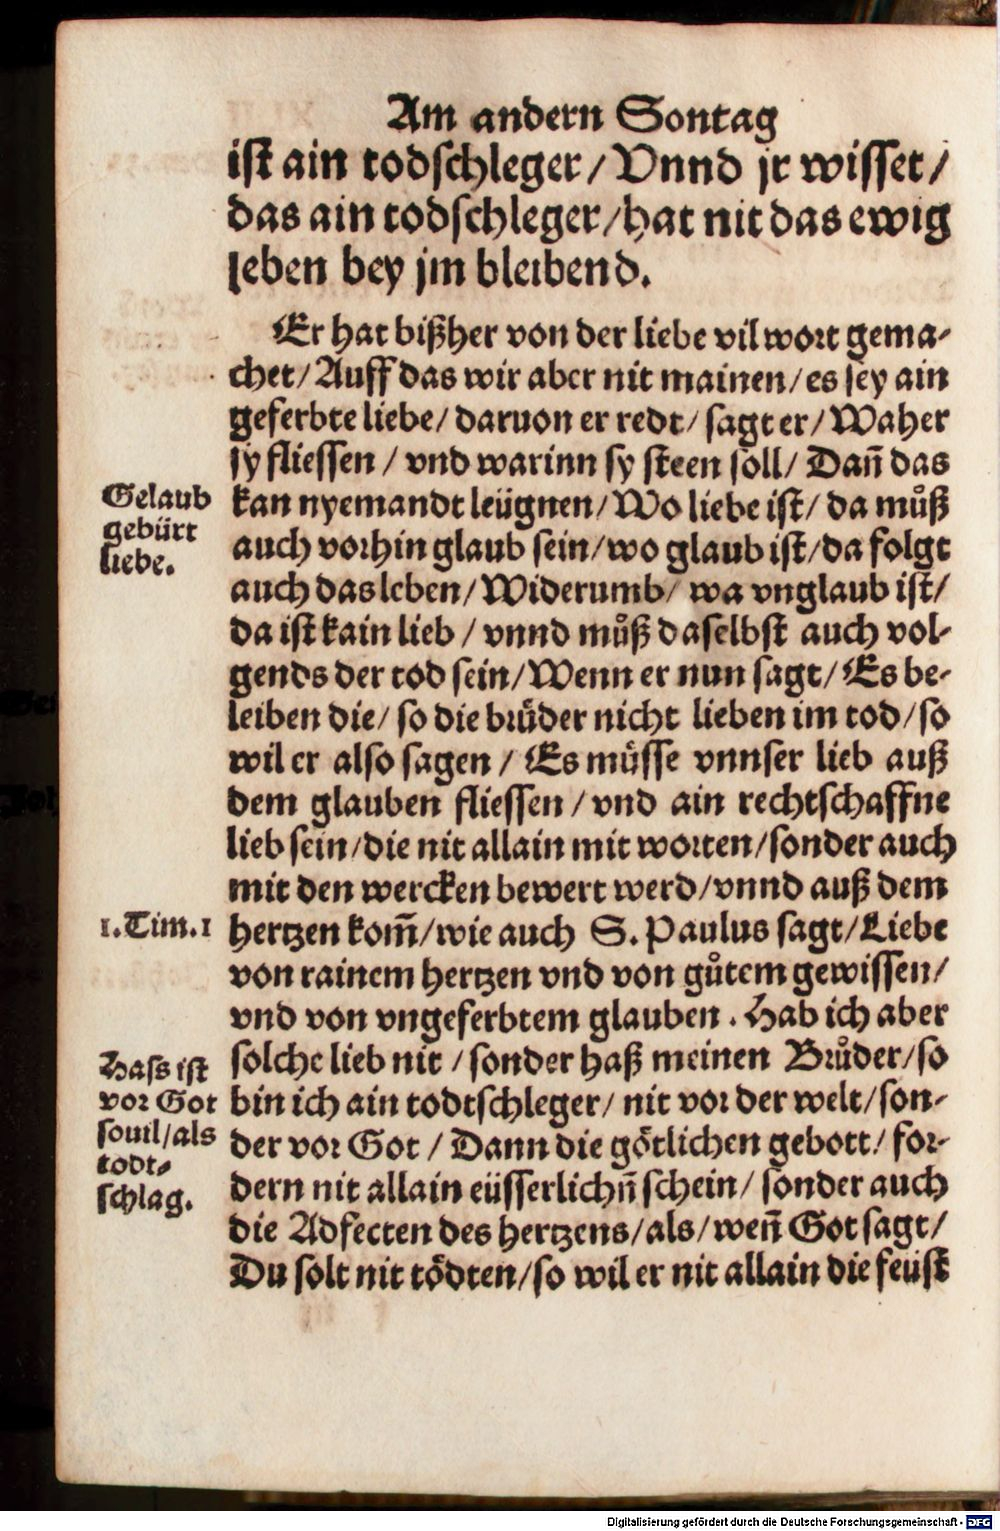 Am andern Sontag
ist ain todschleger / Vnnd jr wisset /
das ain todschleger / hat nit das ewig
leben bey jm bleibend.
Er hat bißher von der liebe vil wort gema-
chet / Auff das wir aber nit mainen / es sey ain
geferbte liebe / daruon er redt / sagt er / Waher
sy fliessen / vnd warinn sy steen soll / Dañ das
Gelaub
gebürt
liebe.
kan nyemandt leügnen / Wo liebe ist / da můß
auch vorhin glaub sein / wo glaub ist / da folgt
auch das leben / Widerumb / wa vnglaub ist /
da ist kain lieb / vnnd můß daselbst auch vol-
gends der tod sein / Wenn er nun sagt / Es be-
leiben die / so die brůder nicht lieben im tod / so
wil er also sagen / Es můsse vnnser lieb auß
dem glauben fliessen / vnd ain rechtschaffne
lieb sein / die nit allain mit worten / sonder auch
mit den wercken bewert werd / vnnd auß dem
1. Tim. 1
hertzen kom̄ / wie auch S. Paulus sagt / Liebe
von rainem hertzen vnd von gůtem gewissen /
vnd von vngeferbtem glauben. Hab ich aber
Hass ist
vor Got
souil / als
todt-
schlag.
solche lieb nit / sonder haß meinen Brůder / so
bin ich ain todtschleger / nit vor der welt / son-
der vor Got / Dann die götlichen gebott / for-
dern nit allain eüsserlichñ schein / sonder auch
die Adfecten des hertzens / als / weñ Got sagt /
Du solt nit tödten / so wil er nit allain die feüst
Digitalisierung gefördert durch die Deutsche Forschungsgemeinschaft - DFG